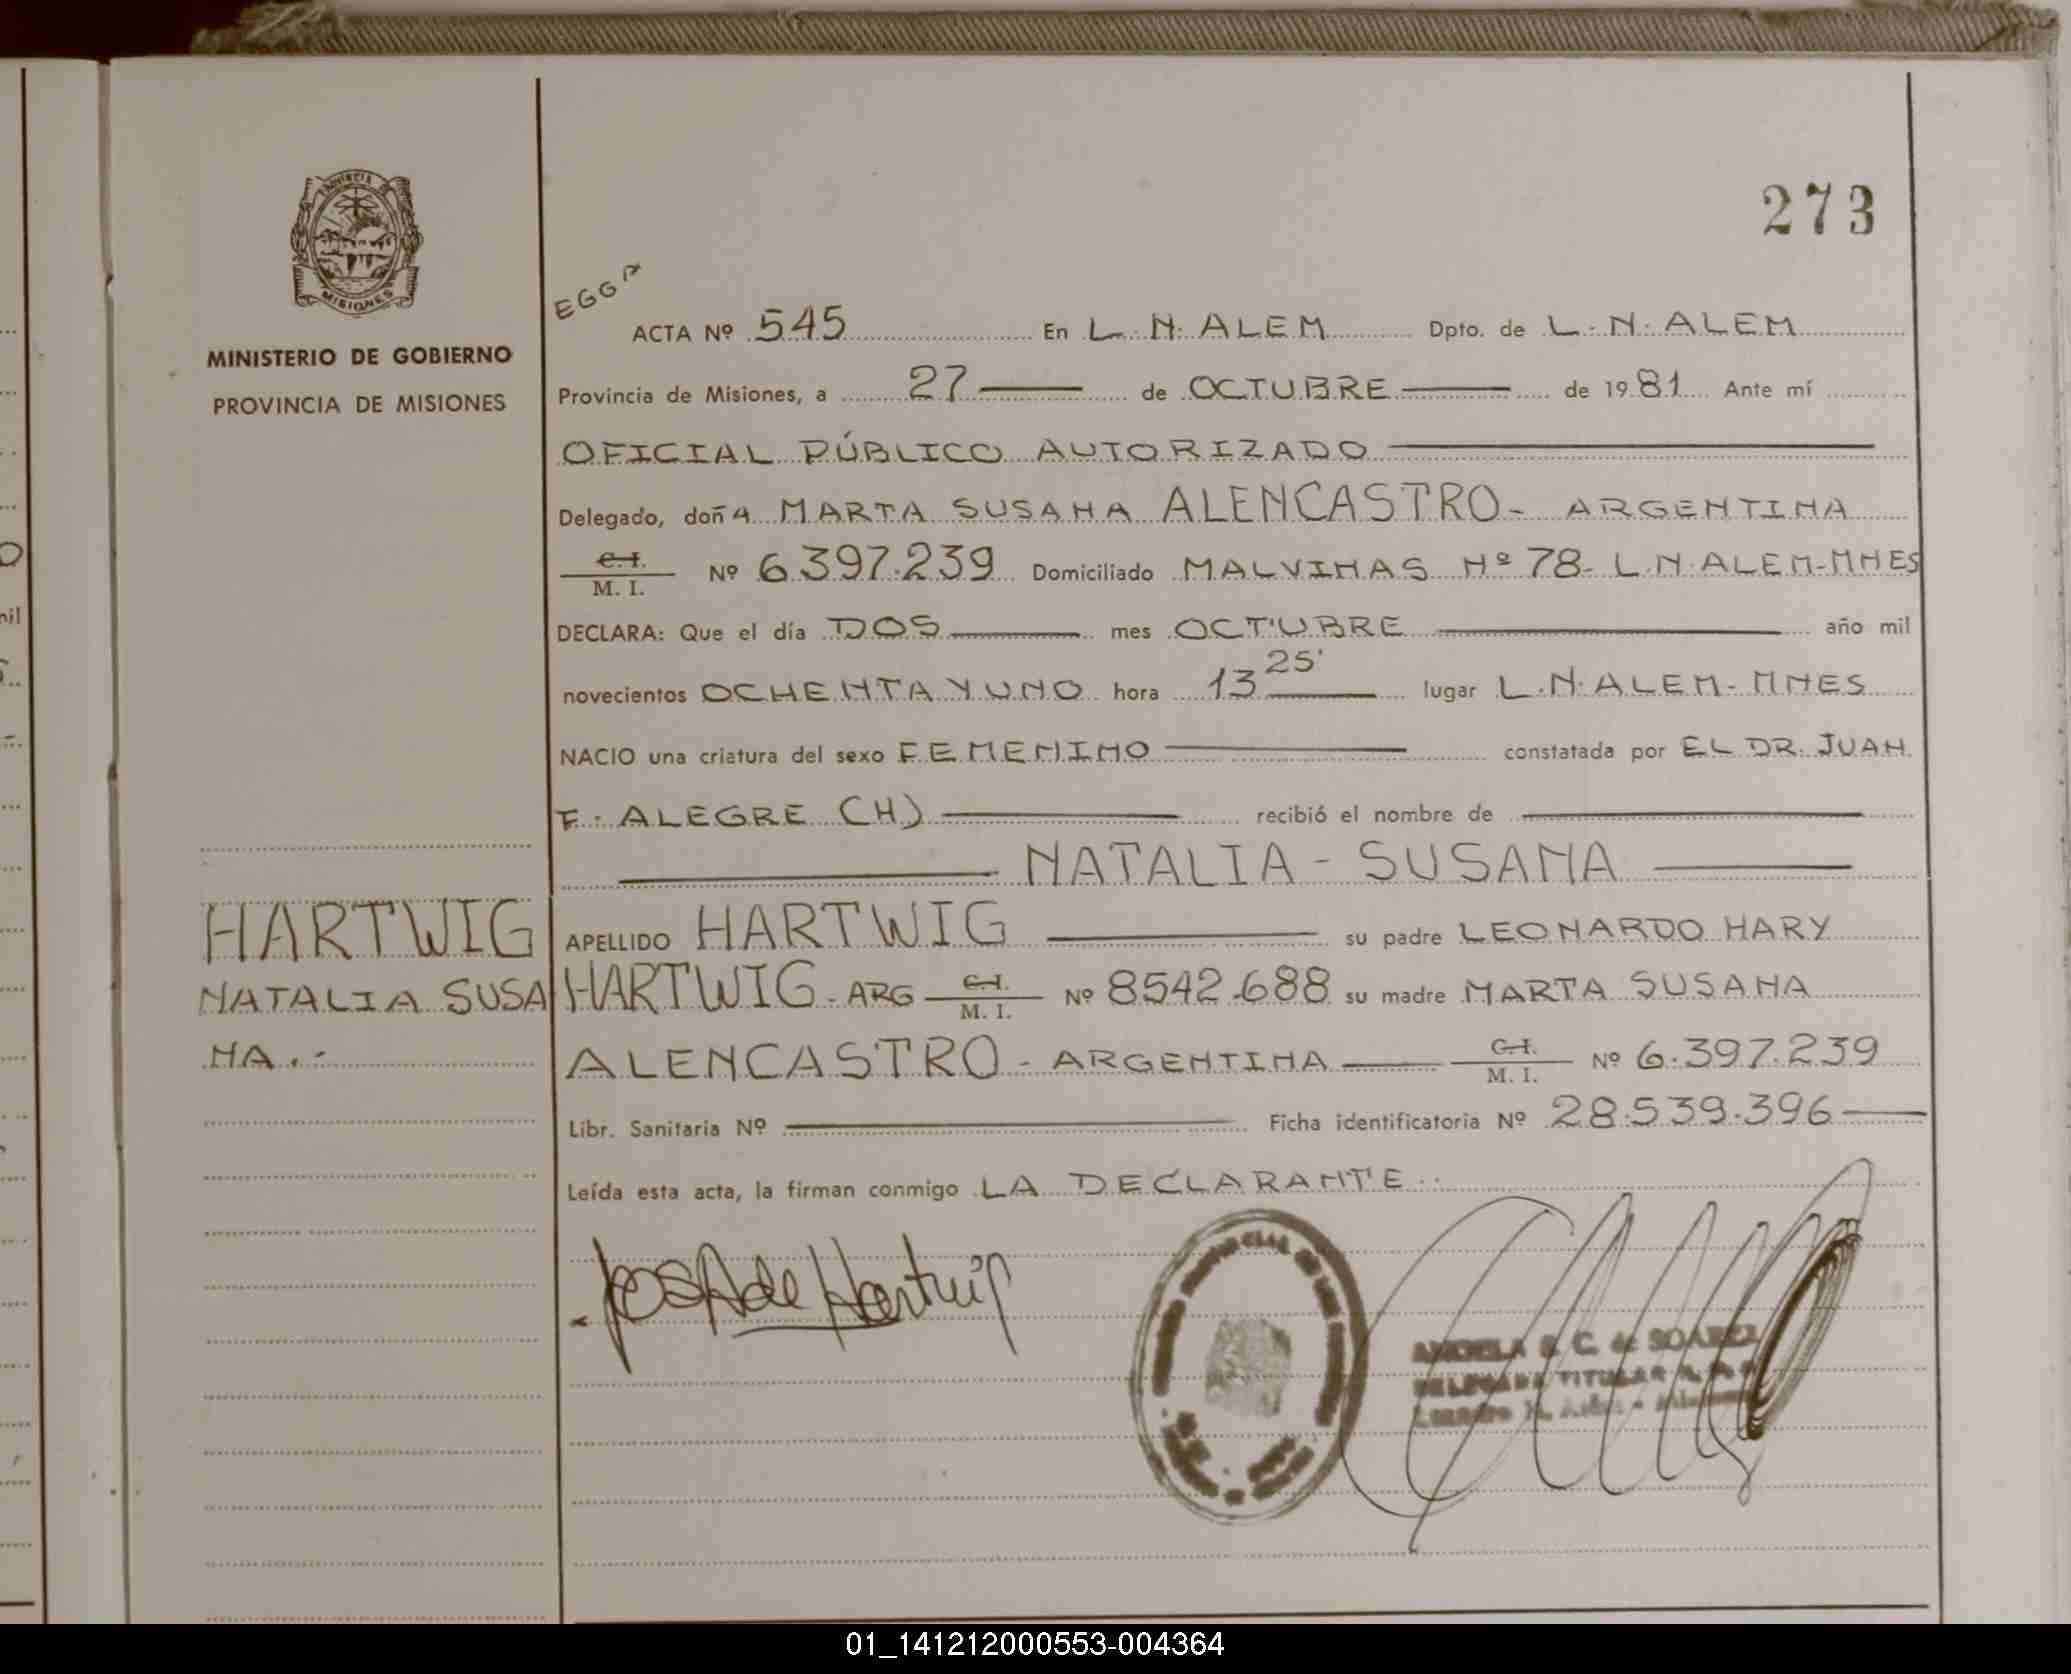 273
PROVINCIA
MISIONES
MINISTERIO DE GOBIERNO
PROVINCIA DE MISIONES
ACTA Nº 545 En L. N. ALEM Dpto. de L. N. ALEM
Provincia de Misiones, a 27 de OCTUBRE de 1981 Ante mí
OFICIAL PÚBLICO AUTORIZADO
Delegado, doña MARTA SUSANA ALENCASTRO - ARGENTINA
C.I.
M. I. Nº 6.397.239 Domiciliado MALVINAS Nº 78 - L.N. ALEM - MNES
DECLARA: Que el día DOS mes OCTUBRE año mil
novecientos OCHENTA Y UNO hora 13 25' lugar L.N. ALEM - MNES
NACIO una criatura del sexo FEMENINO constatada por EL DR. JUAN
F. ALEGRE (H) recibió el nombre de
NATALIA - SUSANA
HARTWIG
NATALIA SUSA
NA.-
APELLIDO HARTWIG su padre LEONARDO HARY
HARTWIG - ARG C.I. M. I. Nº 8542.688 su madre MARTA SUSANA
ALENCASTRO - ARGENTINA C.I. M. I. Nº 6.397.239
Libr. Sanitaria Nº Ficha identificatoria Nº 28.539.396
Leída esta acta, la firman conmigo LA DECLARANTE.
de Hartwig
C. de SOAREZ
TITULAR
01_141212000553-004364